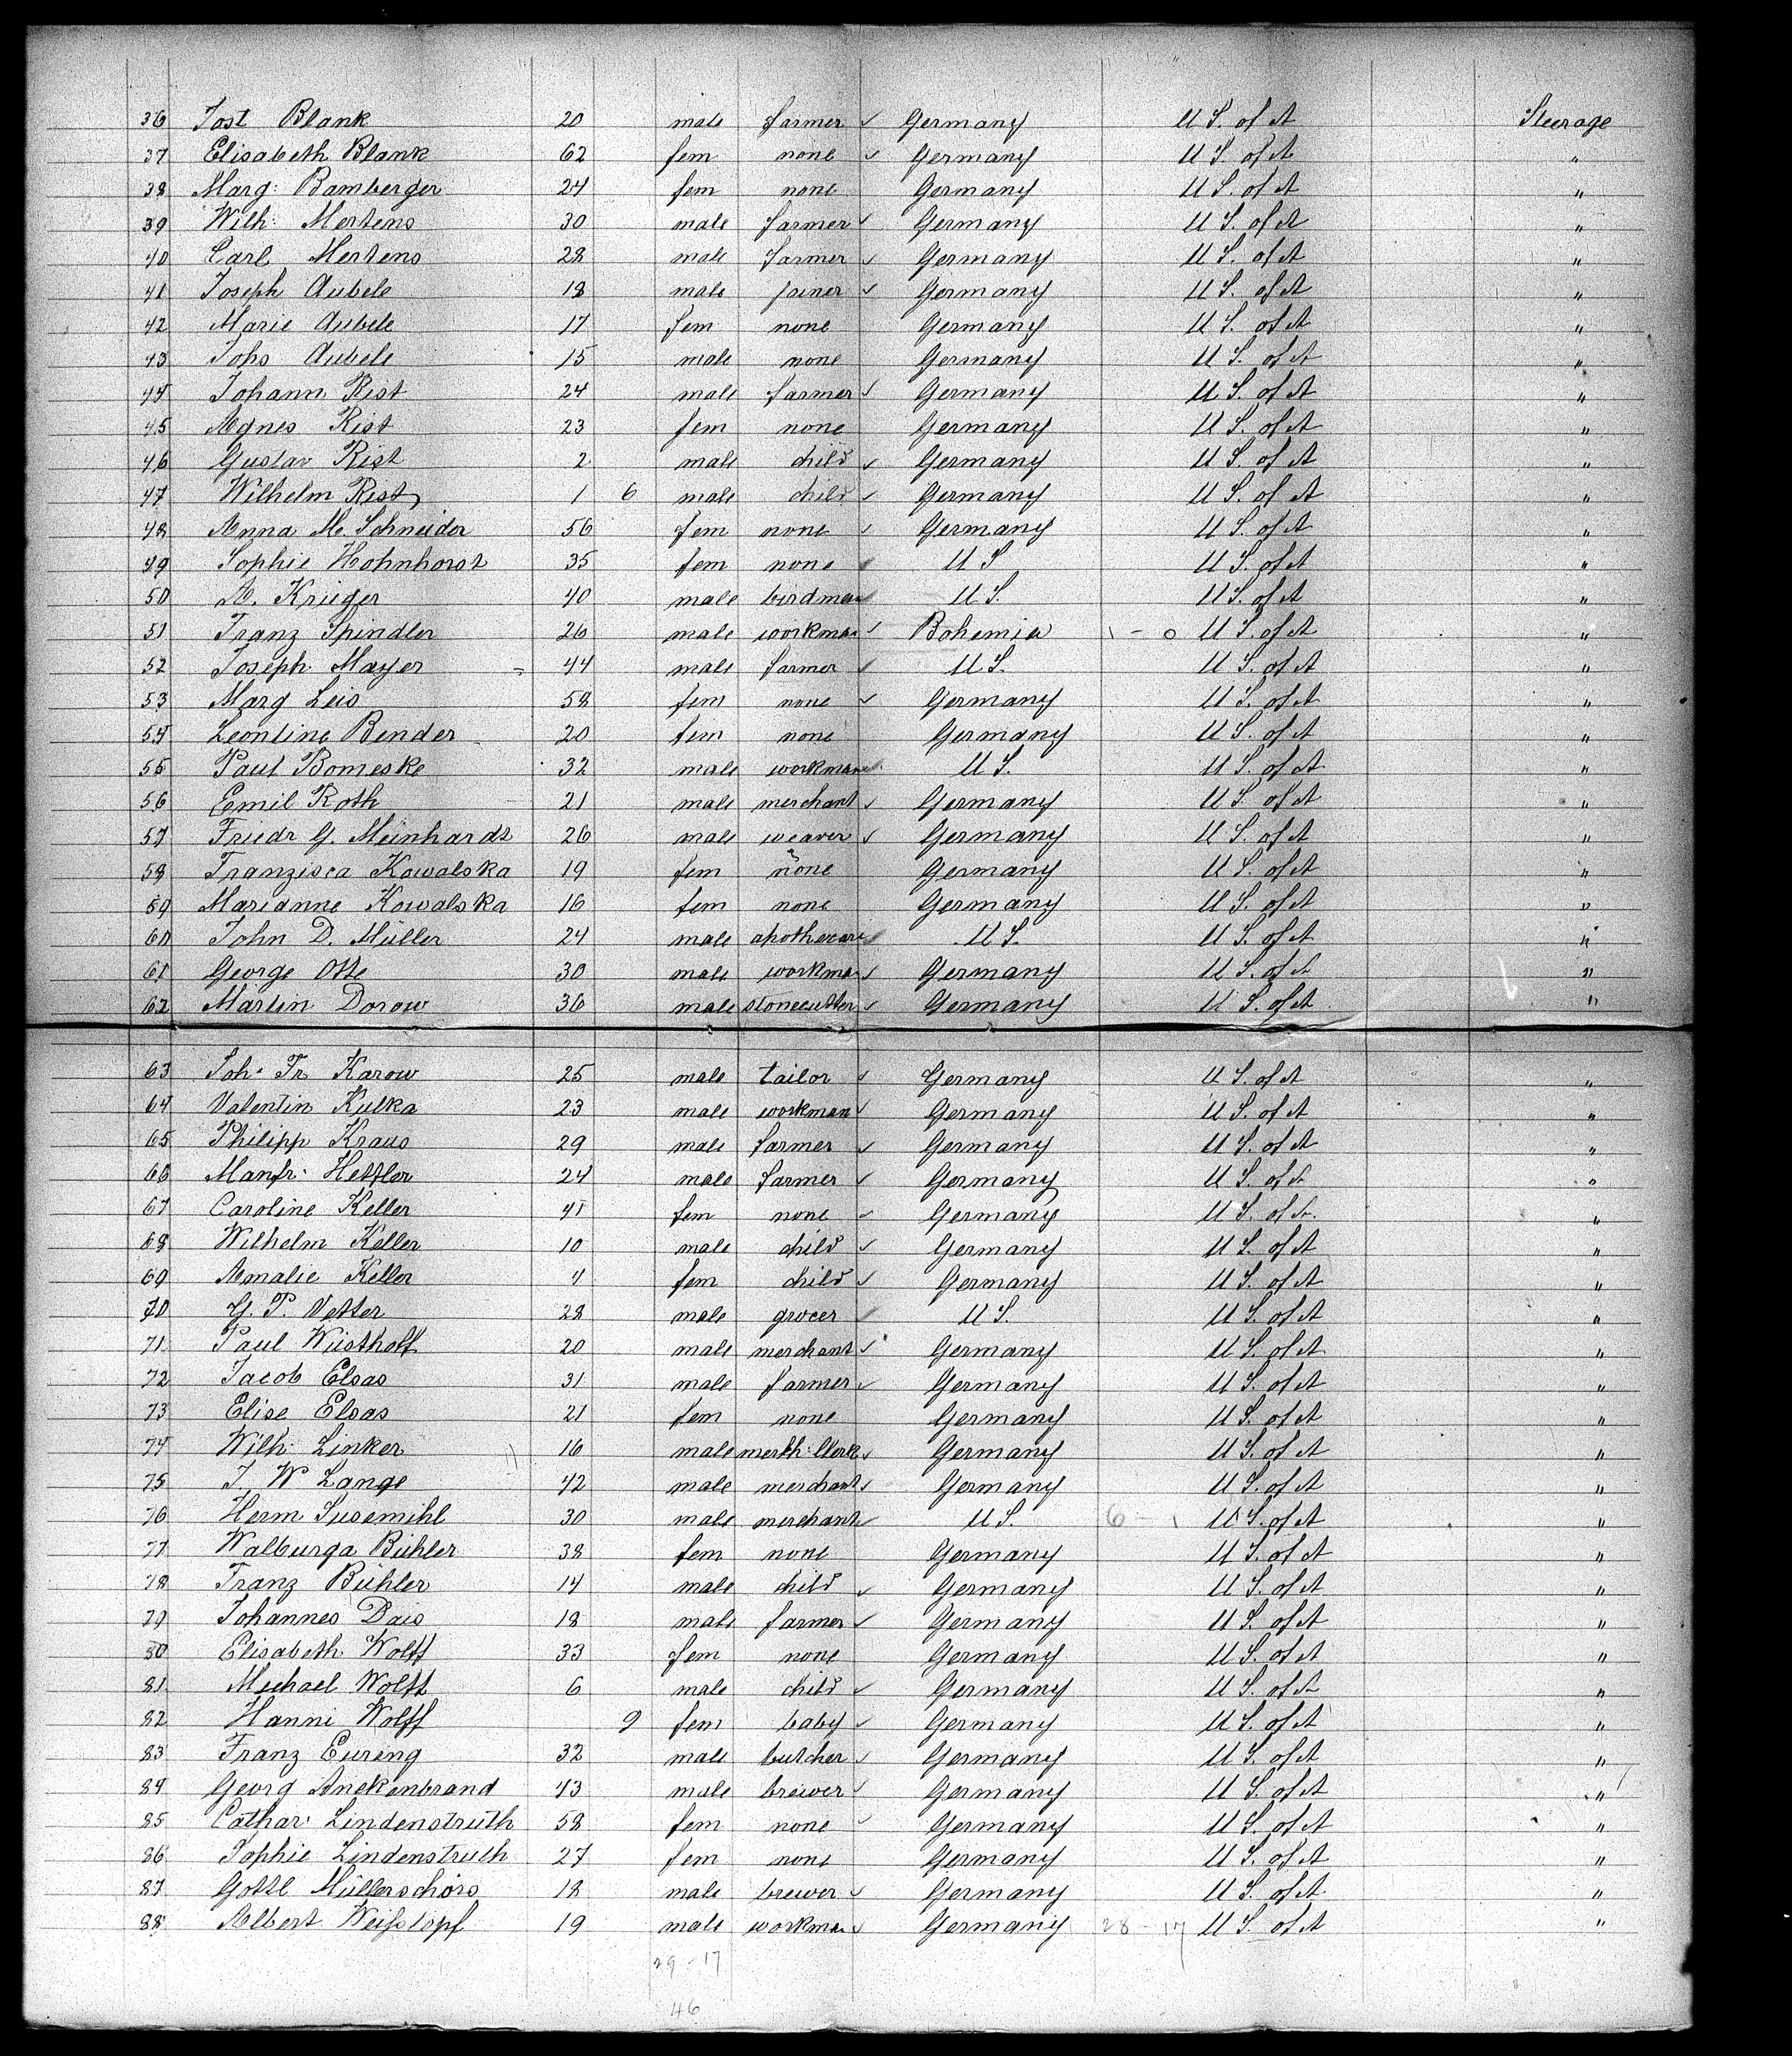 36 Jost Blank 20 male farmer ✓ Germany U S. of A Steerage
37 Elisabeth Blank 62 fem none ✓ Germany U S. of A "
38 Marg: Bamberger 24 fem none Germany U S. of A "
39 Wilh: Mertens 30 male farmer ✓ Germany U S. of A "
40 Carl Mertens 28 male farmer ✓ Germany U S. of A "
41 Joseph Aubele 18 male joiner ✓ Germany U S. of A "
42 Marie Aubele 17 fem none Germany U S. of A "
43 Johs Aubele 15 male none Germany U S. of A "
44 Johann Rist 24 male farmer ✓ Germany U S. of A "
45 Agnes Rist 23 fem none Germany U S. of A "
46 Gustav Rist 2 male child ✓ Germany U S. of A "
47 Wilhelm Rist 1 6 male child ✓ Germany U S. of A "
48 Anna M. Schneider 56 fem none ✓ Germany U S. of A "
49 Sophie Hohnhorst 35 fem none U S U S. of A "
50 A. Krieger 40 male birdman U S. U S. of A "
51 Franz Spindler 26 male workman ✓ Bohemia 1 - 0 U S. of A "
52 Joseph Mayer 44 male farmer U S. U S. of A "
53 Marg Leis 58 fem none ✓ Germany U S. of A "
54 Leontine Bender 20 fem none Germany U S. of A "
55 Paul Bomeske 32 male workman U S. U S. of A "
56 Emil Roth 21 male merchant ✓ Germany U S. of A "
57 Friedr G. Meinhardt 26 male weaver ✓ Germany U S. of A "
58 Franzisca Kowalska 19 fem none Germany U S. of A "
59 Marianne Kowalska 16 fem none Germany U S. of A "
60 John D. Müller 24 male apothecary U S. U S. of A "
61 George Otte 30 male workman ✓ Germany U S. of A "
62 Martin Dorow 36 male stonecutter ✓ Germany U S. of A "
63 Joh. Fr. Karow 25 male tailor ✓ Germany U S. of A "
64 Valentin Kulka 23 male workman ✓ Germany U S. of A "
65 Philipp Kraus 29 male farmer ✓ Germany U S. of A "
66 Manfr. Hettler 24 male farmer ✓ Germany U S. of A "
67 Caroline Keller 41 fem none ✓ Germany U S. of A. "
68 Wilhelm Keller 10 male child ✓ Germany U S. of A "
69 Amalie Keller 4 fem child ✓ Germany U S. of A "
70 G. P. Vetter 28 male grocer U S. U S. of A "
71 Paul Wüsthoff 20 male merchant ✓ Germany U S. of A "
72 Jacob Elsas 31 male farmer ✓ Germany U S. of A "
73 Elise Elsas 21 fem none Germany U S. of A "
74 Wilh: Linker 16 male merch: Clerk ✓ Germany U S. of A "
75 J. W Lange 42 male merchant ✓ Germany U S. of A "
76 Herm Susemihl 30 male merchant U S. 6 - 1 U S. of A "
77 Walburga Bühler 38 fem none Germany U S. of A "
78 Franz Bühler 14 male child ✓ Germany U S. of A "
79 Johannes Dais 18 male farmer ✓ Germany U S. of A "
80 Elisabeth Wolff 33 fem none Germany U S. of A "
81 Michael Wolff 6 male child ✓ Germany U S. of A "
82 Hanni Wolff 9 fem baby ✓ Germany U S. of A "
83 Franz Eureng 32 male butcher ✓ Germany U S. of A "
84 Georg Anekenbrand 43 male brewer ✓ Germany U S. of A "
85 Cathar. Lindenstruth 58 fem none ✓ Germany U S. of A "
86 Sophie Lindenstruth 27 fem none Germany U S. of A "
87 Gottl Müllerschörs 18 male brewer ✓ Germany U S. of A "
88 Albert Weifstopf 19 male workman ✓ Germany 28 - 17 U S. of A "
29 - 17
46